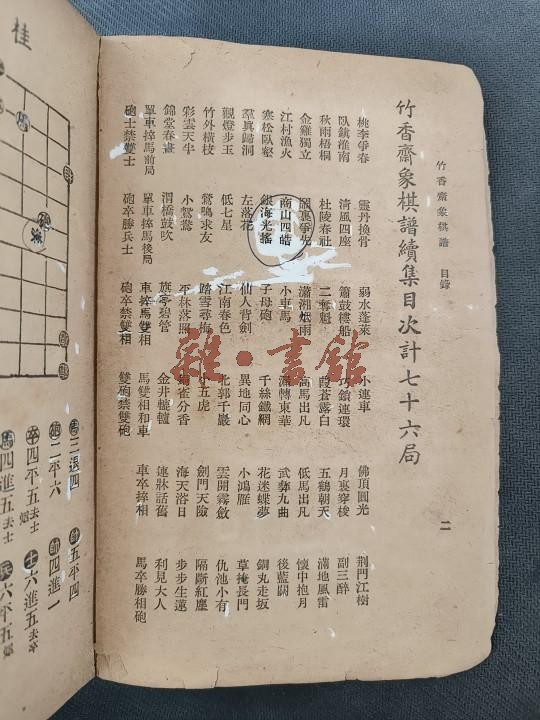 竹香齋象棋譜 目錄 二
竹香齋象棋譜續集目次計七十六局
桃李爭春 靈丹換骨 弱水蓬萊 小連車 佛頂圓光 荆門江樹
臥鎮淮南 清風四座 簫鼓樓船 巧鎖連環 月裏穿梭 副三醉
秋雨梧桐 杜陵春社 二奪魁 葭蒼露白 五鶴朝天 滿地風雷
金雞獨立 裏爭先 瀟湘烟雨 高馬出凡 低馬出凡 懷中抱月
江村漁火 商山四皓 小車馬 轉東華 武彝九曲 後藍關
寒松臥壑 銀海光搖 子母砲 千絲鐵網 花迷蝶夢 銅丸走坂
羣真歸洞 左落花 仙人背劍 異地同心 小鴻雁 草掩長門
觀燈步玉 低七星 江南春色 北郭千巖 雲開霧斂 仇池小有
竹外橫枝 鶯鳴求友 踏雪尋梅 小五虎 劍門天險 隔斷紅塵
彩雲天半 小鴛鴦 平林落照 銅雀分香 海天浴日 步步生蓮
錦堂春晝 渭橋鼓吹 旗亭碧管 金井轆轤 連牀話舊 利見大人
單車捽馬前局 單車捽馬後局 車捽馬雙相 馬雙相和車 車卒捽相 馬卒勝相砲
砲士禁雙士 砲卒勝兵士 砲卒禁雙相 雙砲禁雙砲
雜·書館
桂
馬三退四 帥五平四
砲二平六 帥四進一
卒四平五去士 士六進五去卒
馬四進五去士 兵六平五